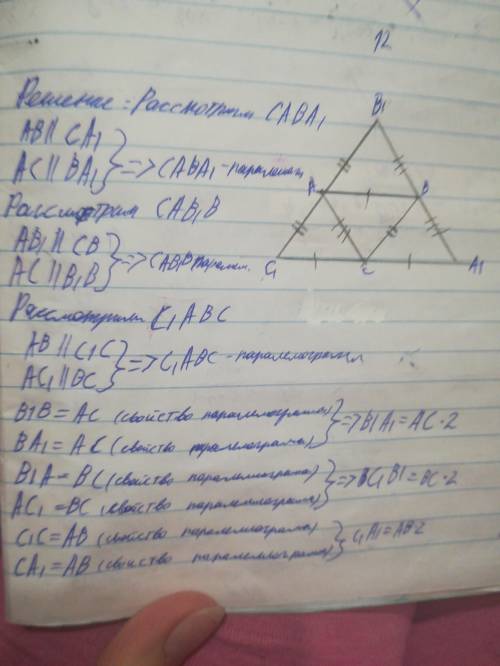 12
Решение: Рассмотрим CABA1
AB || CA1
AC || BA1 } => CABA1 - паралелограм
Рассмотрим CAB1B
AB1 || CB
AC || B1B } => CAB1B паралел.
Рассмотрим C1ABC
AB || C1C
AC1 || BC } => C1ABC - паралемограмм
B1B = AC (свойство паралемограма)
BA1 = AC (свойство паралемограма) } => B1A1 = AC · 2
B1A = BC (свойство паралемограма)
AC1 = BC (свойство паралемограма) } => C1B1 = BC · 2
C1C = AB (свойство паралемограма)
CA1 = AB (свойство паралемограма) } C1A1 = AB · 2
B1
A
B
C1
C
A1